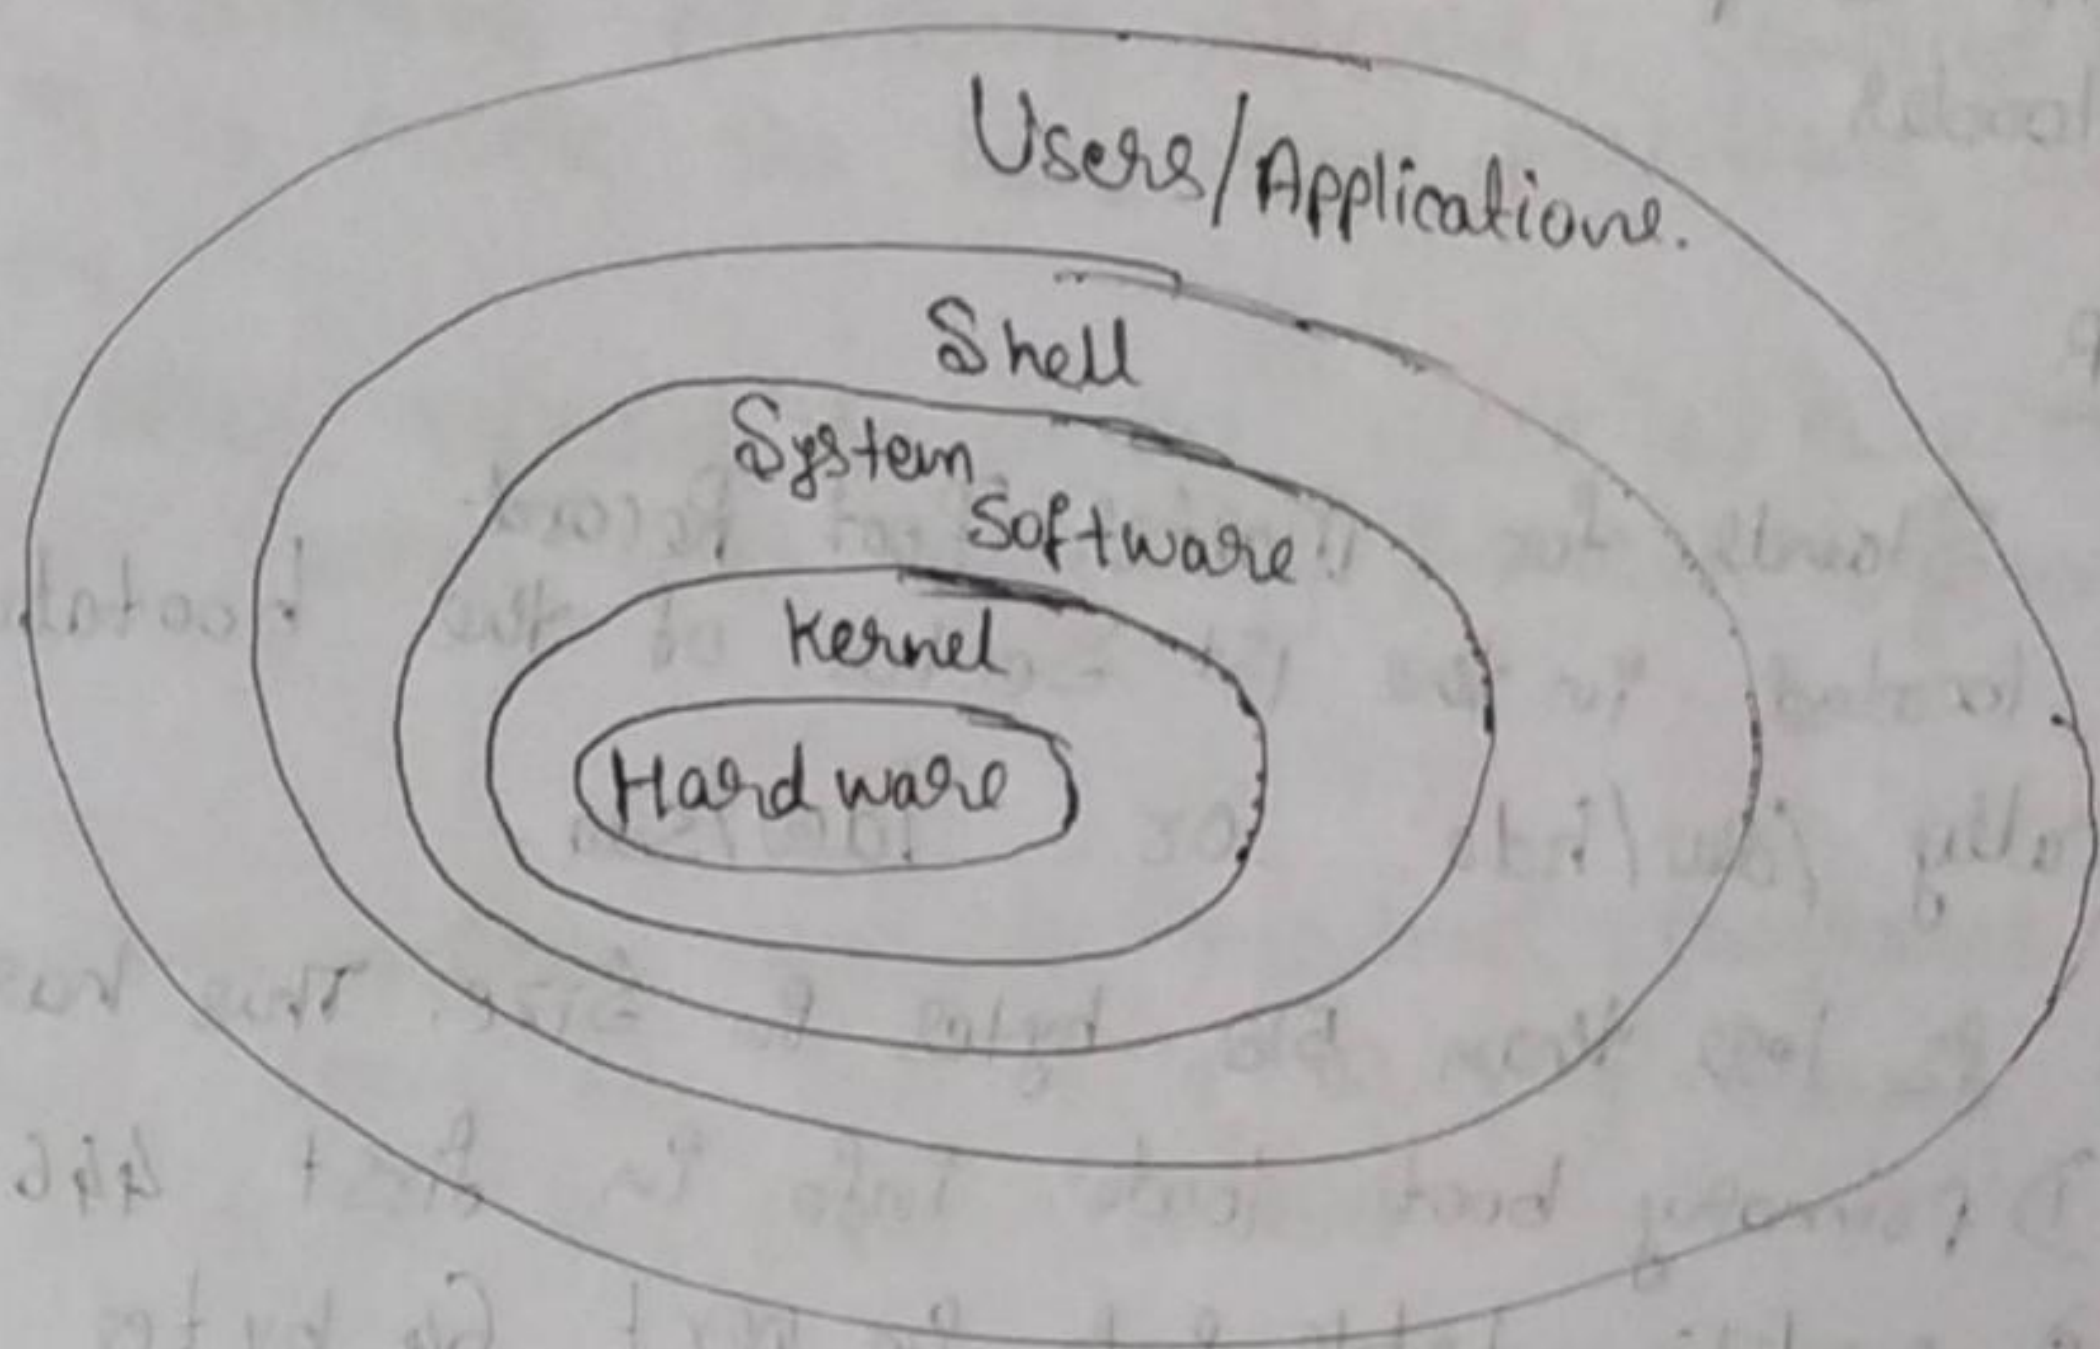 Users/Applications.
Shell
System
Software
Kernel
Hardware